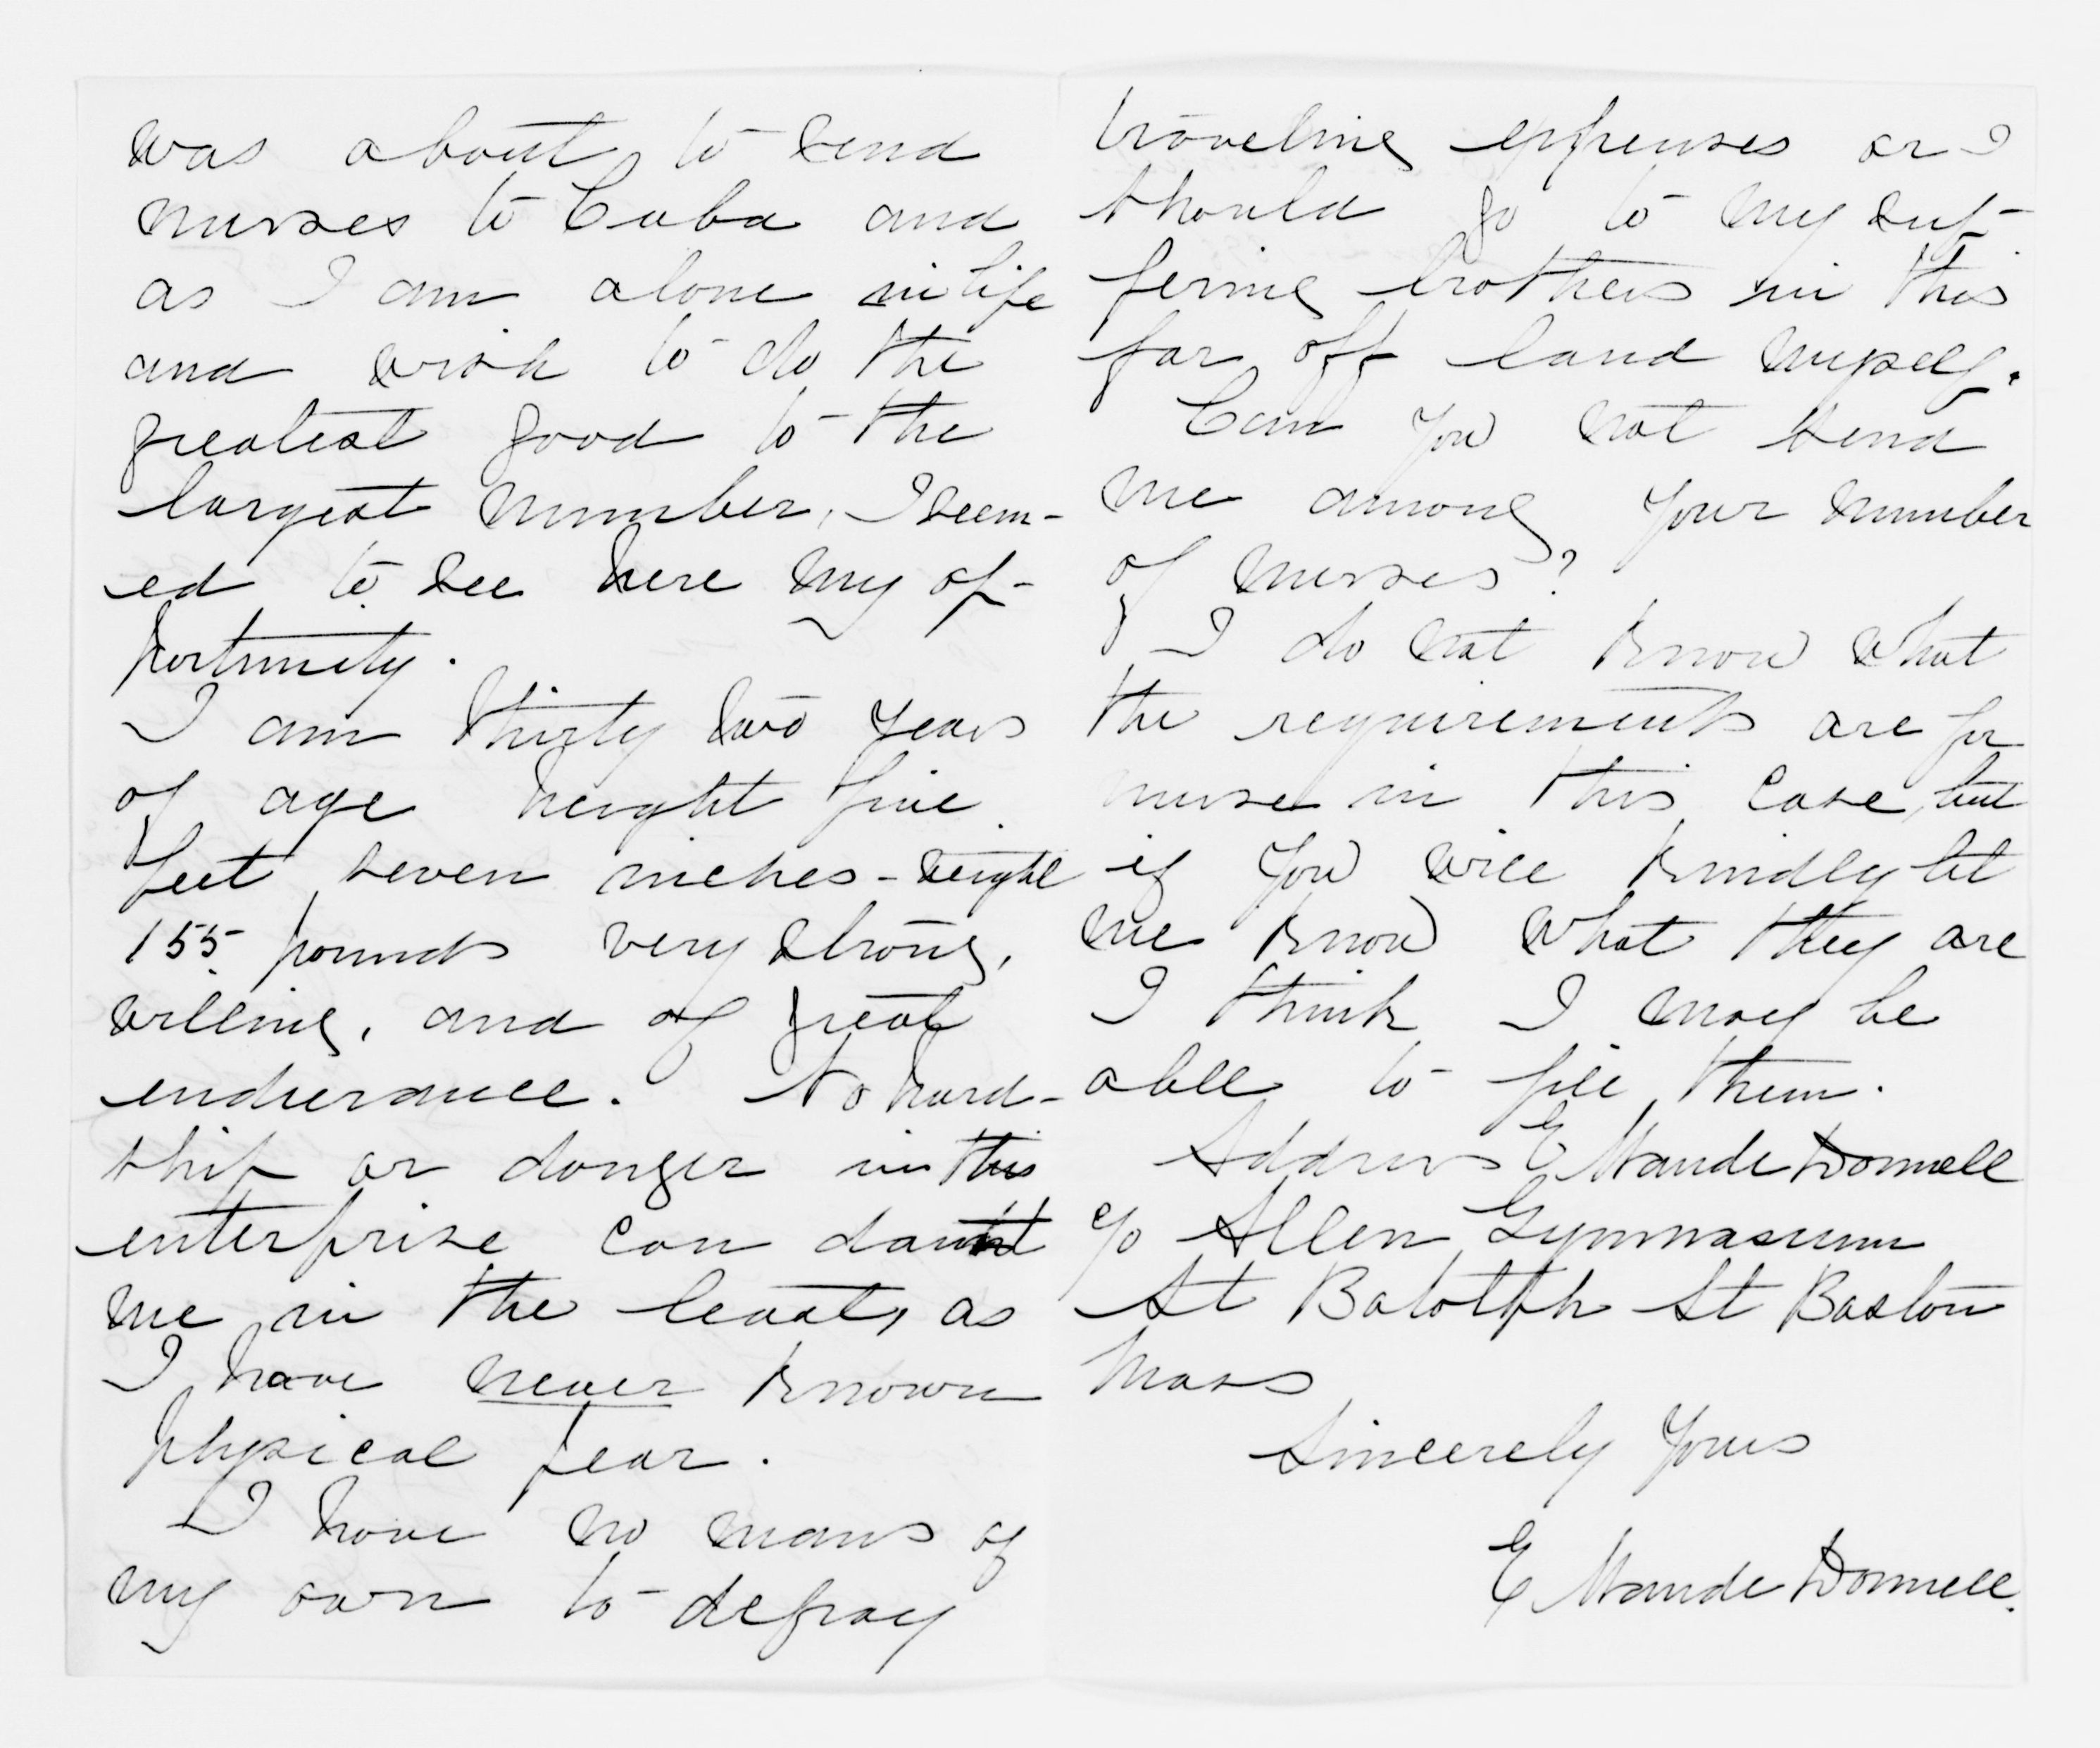 was about to send
nurses to Cuba and
as I am alone in life
and wish to do the
greatest good to the
largest number, I seem-
ed to see here my op-
portunity.
I am thirty two years
of age height five
feet seven inches - weight
155 pounds very strong,
willing, and of great
endurance. No hard-
ship or danger in this
enterprise can daunt
me in the least, as
I have never known
physical fear.
I have no means of
my own to defray
traveling expenses or I
should go to my suf-
fering brothers in this
far off land myself.
Can you not send
me among your number
of nurses?
I do not know what
the requirements are for
nurse in this case, but
if you will kindly let
me know what they are
I think I may be
able to fill them.
Address E Maude Donnell
c/o Allen Gymnasium
St Botolph St Boston
Mass
Sincerely Yours
E Maude Donnell.